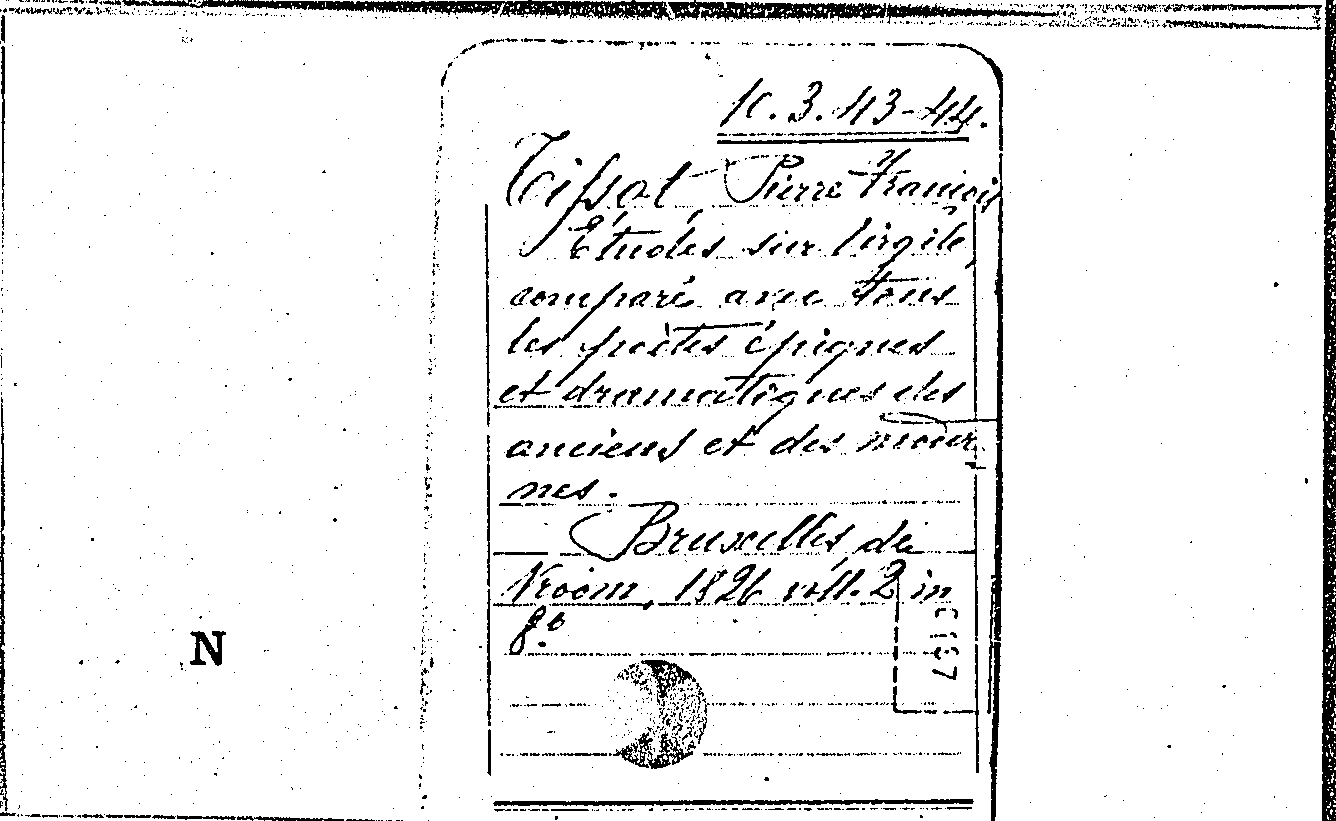 K. 3. 43-44.
Tissot, Pierre François
Études sur Virgile,
comparé avec tous
les poètes épiques
et dramatiques des
anciens et des moder
nes.
Bruxelles de
Vroom, 1826 voll. 2 in
8.º
N